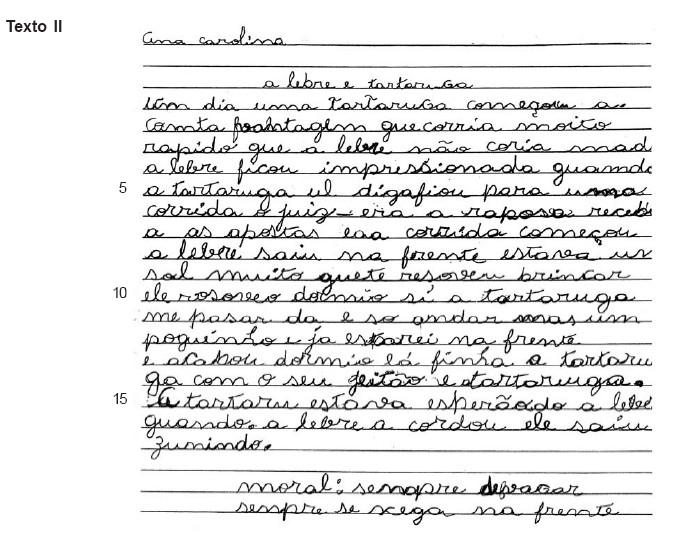 Texto II
Ana carolina
a lebre e tartaruga
Um dia uma tartaruga começou a
comta que corria moito
rapido que a lebre não coria mad
a lebre ficou impressionada quamdo
5 a tartaruga ul dizafiou para uma
corrida o juiz era a raposa receb
a as apostas eaa corrida começou
a lebre saiu na frente estava un
sol muito quete resoveu brincar
10 ele rosoveo dormio si a tartaruga
me pasar da e so andar mas um
poguinho e ja estarei na frente
e acabou dormio lá finha a tartaru
ga com o seu jeitão e dartaruga.
15 A tartaru estava esperãodo a lebre
guando. a lebre a cordou ele saiu
zunindo.
moral: senopre devacar
sempre se xega na frente